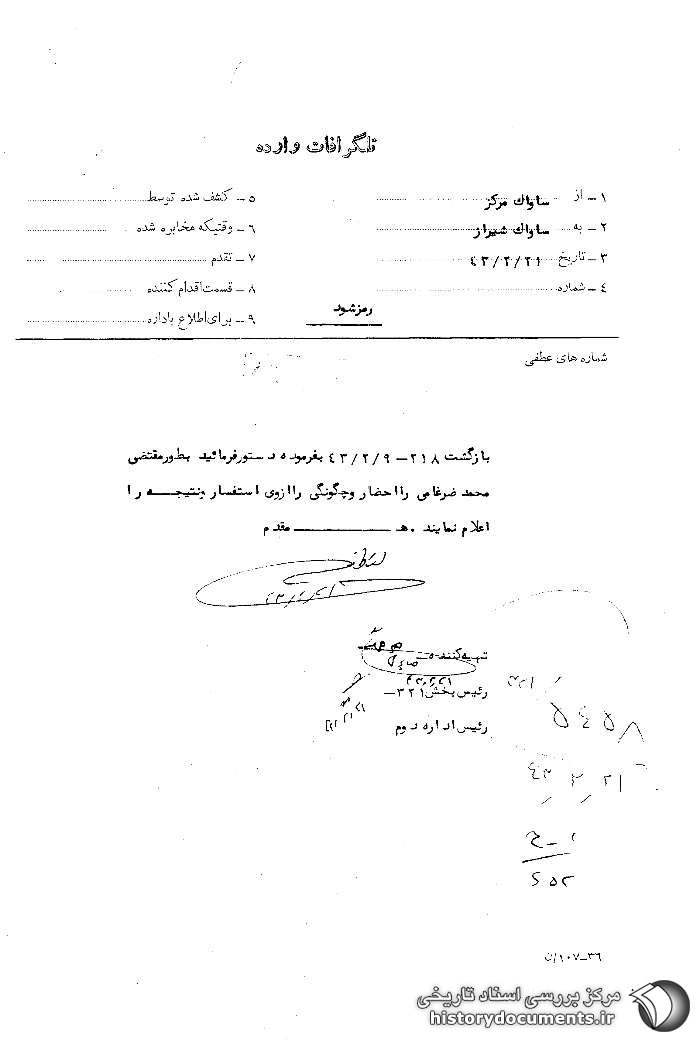 تلگرافات وارده
۱ – از ساواك مركز
۲ – به ساواك شيراز
۳ – تاريخ ۴۳/۲/۲۱
۴ – شماره
۵ – كشف شده توسط
۶ – وقتيكه مخابره شده
۷ – تقدم
۸ – قسمت اقدام كننده
۹ – براى اطلاع باداره
رمز شود
شماره هاى عطفى
بازگشت ۲۱۸ – ۴۳/۲/۹ بفرموده دستور فرمائيد بطور مقتضى
محمد ضرغامى را احضار و چگونگى را از وى استفسار و نتيجه را
اعلام نمايند . ه مقدم
۴۳/۲/۲۱
تهيه كننده
۴۳/۲/۲۱
رئيس بخش ۳۲۱ –
رئيس اداره دوم
۳۲۱/
۵۴۵۸
۴۳/۲/۲۱
۳۶–۱۰۷/ن
مركز بررسى اسناد تاريخى
historydocuments.ir